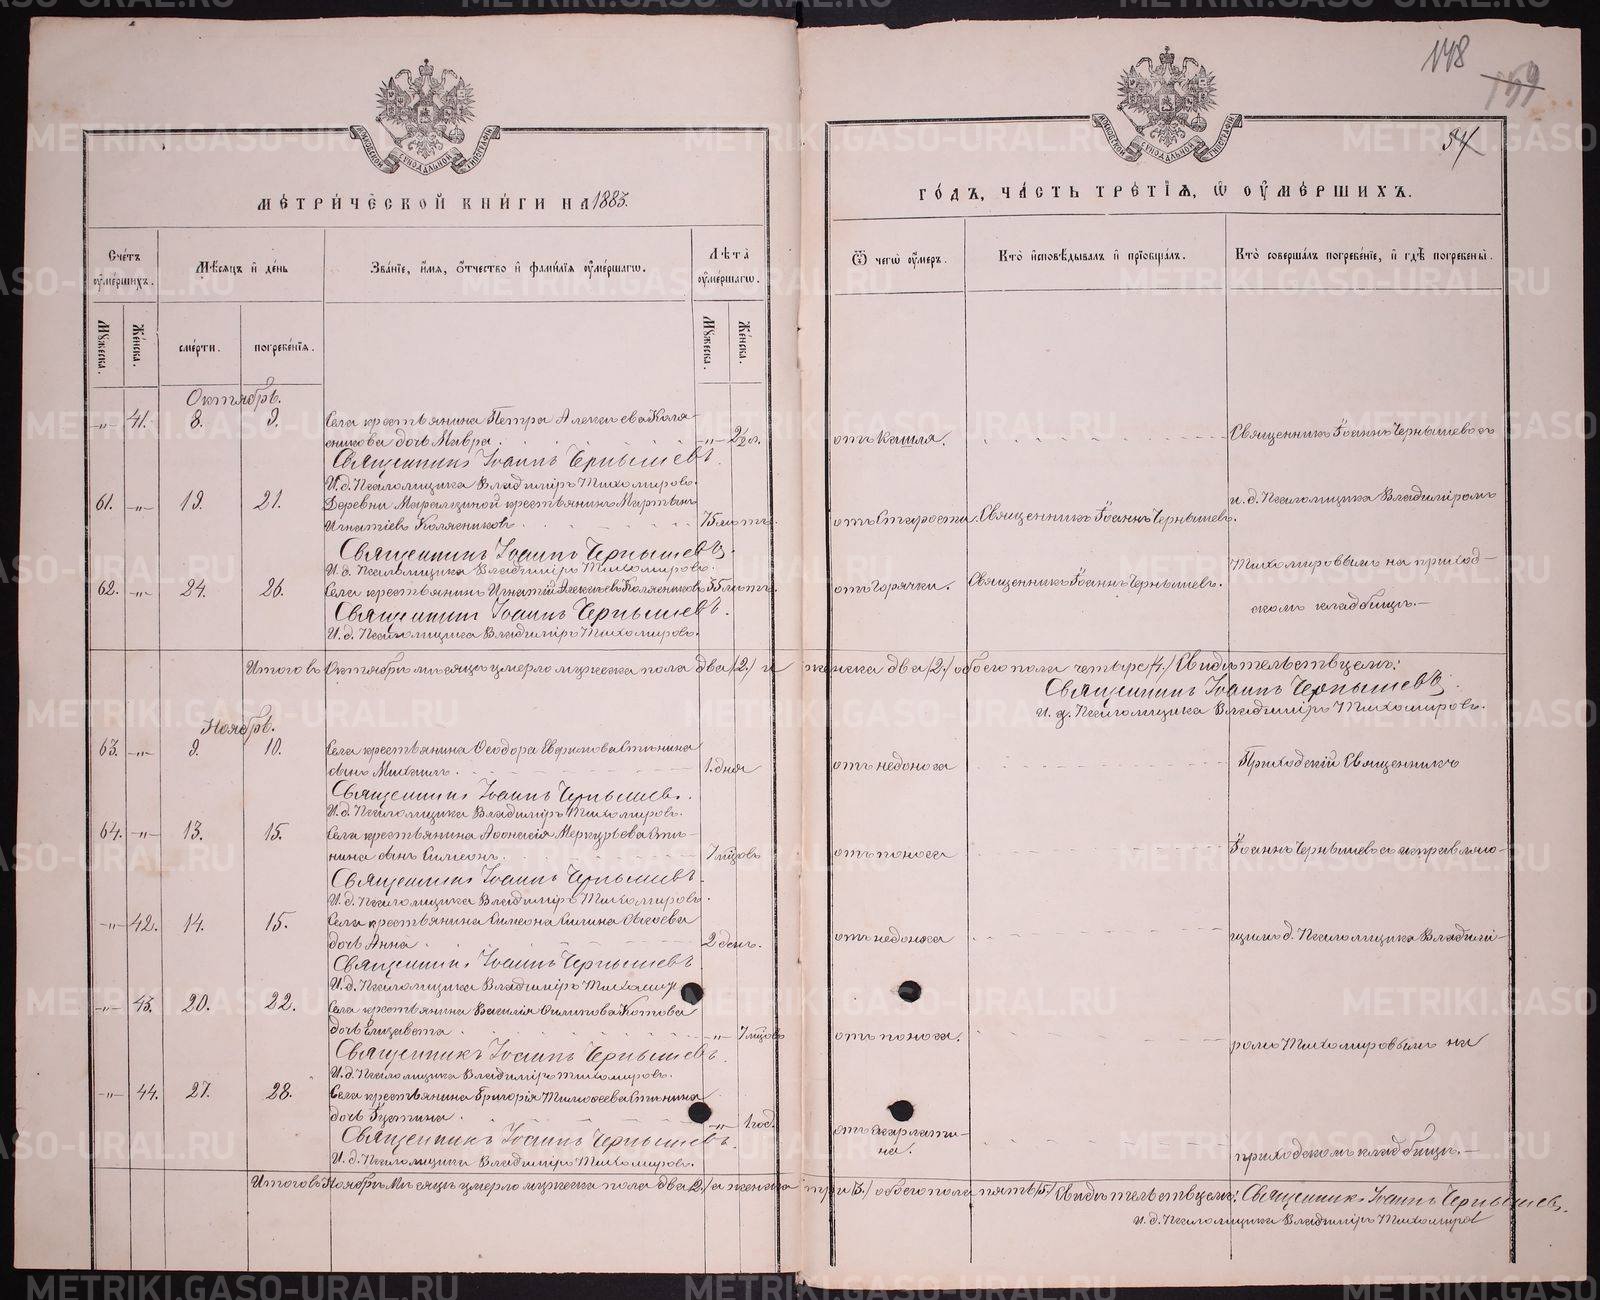 148
159
34
МЕТРИЧЕСКОЙ КНИГИ НА 1883.
ГОДЪ, ЧАСТЬ ТРЕТІЯ, Ѡ ОУМЕРШИХЪ.
Счетъ оумершихъ.
Мѣсяцъ и день
Званіе, имя, отчество и фамилія оумершагѡ.
Лѣта оумершагѡ.
Ѿ чегѡ оумеръ.
Кто исповѣдывалъ и пріобщалъ.
Кто совершалъ погребеніе, и гдѣ погребены.
Мужеска.
Женска.
смерти.
погребенія.
Мужеска.
Женска.
Октябрь.
-"- 41. 8. 9. Села крестьянина Петра Алексѣева Коля-
сникова дочь Мавра. -"- 2½ л. отъ Кашля. Священникъ Іоаннъ Чернышевъ съ
Священникъ Іоаннъ Чернышевъ.
И. д. Псаломщика Владиміръ Тихомировъ.
61. -"- 19. 21. Деревни крестьянинъ Мартынъ
Игнатіевъ Колясниковъ. 75 лѣтъ. отъ Старости. Священникъ Іоаннъ Чернышевъ. и. д. Псаломщика Владиміромъ
Священникъ Іоаннъ Чернышевъ.
И. д. Псаломщика Владиміръ Тихомировъ.
62. -"- 24. 26. Села крестьянинъ Игнатій Алексѣевъ Колясниковъ 55 лѣтъ. отъ Горячки. Священникъ Іоаннъ Чернышевъ. Тихомировымъ на приход-
скомъ кладбищѣ.—
Священникъ Іоаннъ Чернышевъ.
И. д. Псаломщика Владиміръ Тихомировъ.
Итого въ Октябрѣ мѣсяцѣ умерло мужеска пола два /2./ и женска два /2./ обоего пола четыре /4./ Свидѣтельствуемъ:
Священникъ Іоаннъ Чернышевъ.
И. д. Псаломщика Владиміръ Тихомировъ.
Ноябрь.
63. -"- 9. 10. Села крестьянина Ѳеодора Евфимова Стѣнина
сынъ Михаилъ. 1. дня отъ недоноса Приходскій Священникъ
Священникъ Іоаннъ Чернышевъ.
И. д. Псаломщика Владиміръ Тихомировъ.
64. -"- 13. 15. Села крестьянина Аѳонасія Меркурьева Стѣ-
нина сынъ Симеонъ. 7 мѣцовъ отъ поноса Іоаннъ Чернышевъ съ исправляю-
Священникъ Іоаннъ Чернышевъ.
И. д. Псаломщика Владиміръ Тихомировъ.
-"- 42. 14. 15. Села крестьянина Симеона Силина
дочь Анна. 2 день. отъ недоноса щимъ д. Псаломщика Владимі-
Священникъ Іоаннъ Чернышевъ
И. д. Псаломщика Владиміръ
-"- 43. 20. 22. Села крестьянина Василія Филипова Котова
дочь Елизавета -"- 7 мѣцовъ отъ поноса. ромъ Тихомировымъ на
Священникъ Іоаннъ Чернышевъ.
И. д. Псаломщика Владиміръ Тихомировъ.
-"- 44. 27. 28. Села крестьянина Григорія Тимоѳеева Стѣнина
дочь Іустина. -"- 1 год. отъ скарлати-
на. приходскомъ кладбищѣ.—
Священникъ Іоаннъ Чернышевъ.
И. д. Псаломщика Владиміръ Тихомировъ.
Итого въ Ноябрѣ Мѣсяцѣ умерло мужеска пола два /2./ а женска три /3./ обоего пола пять /5./ Свидѣтельствуемъ: Священникъ Іоаннъ Чернышевъ.
И. д. Псаломщика Владиміръ Тихомировъ
METRIKI.GASO-URAL.RU